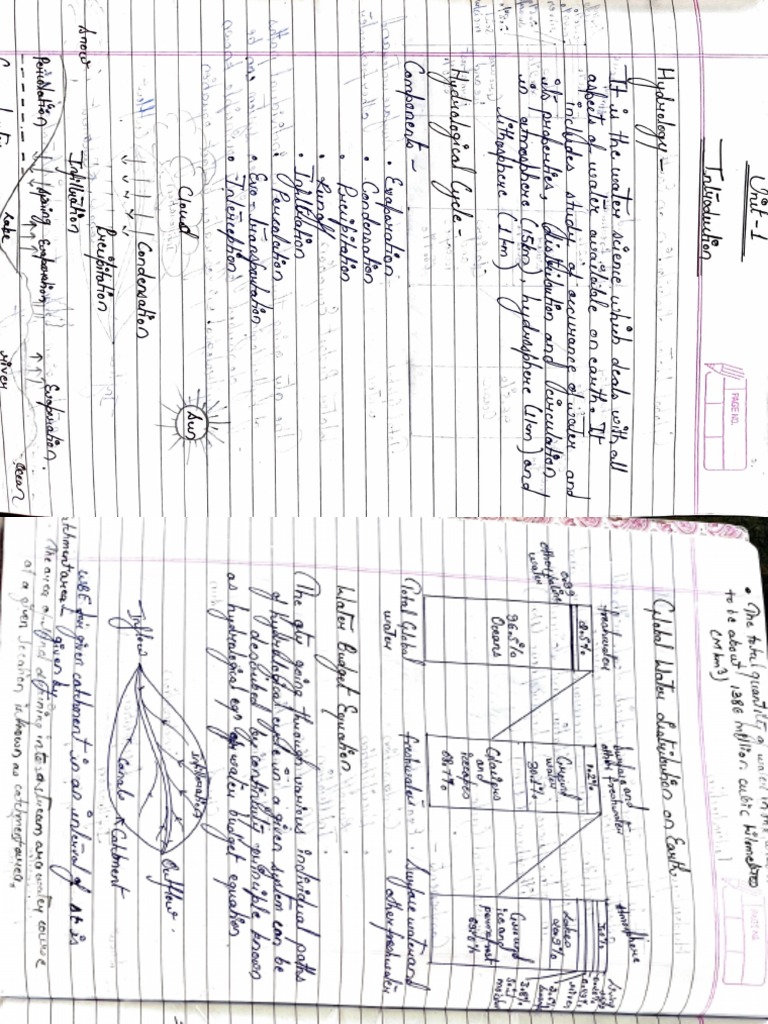 Unit - 1
Introduction
PAGE NO.
Hydrology -
It is the water science which deals with all
aspects of water available on earth. It
includes study of occurance of water and
its properties, distribution and circulation
in atmosphere (15km), hydrosphere (1km) and
lithosphere (1km)
Hydrological Cycle -
Components -
• Evaporation
• Condensation
• Precipitation
• Runoff
• Infiltration
• Percolation
• Evo-transpiration
• Interception
Cloud
Sun
Condensation
Precipitation
Snow
Infiltration
Percolation
Evaporation
Evaporation.
Lake
river
Ocean
• The total quantity of water in the
to be about 1386 million cubic kilometres
(M km³)
PAGE NO.
Global Water distribution on Earth.
freshwater
Surface and
other freshwater
Atmosphere
3.0%
Living
2.5%
1.2%
other saline
water
Ground
water
30.1%
Lakes
3.8%
Soil
96.5%
Oceans
Glaciers
and
icecapes
68.7%
Ground
ice and
permafrost
Total Global
water
freshwater
Surface water and
other freshwater
Water Budget Equation
The qty going through various individual paths
of hydrological cycle in a given system can be
described by continuity principle known
as hydrological eqn or water budget equation.
Infiltration
Inflow
Outflow.
Canals
Catchment
WBE for given catchment in an interval of Δt is
given by
Catchment area -
The area of land draining into a stream or a water course
at a given location is known as catchment area.